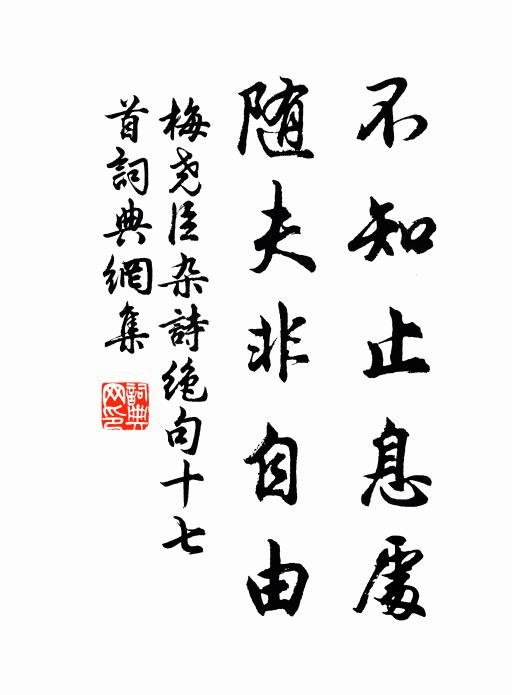 不知止息處
随夫非自由
梅尧臣杂詩绝句十七
首詞典網集
詞典
网印